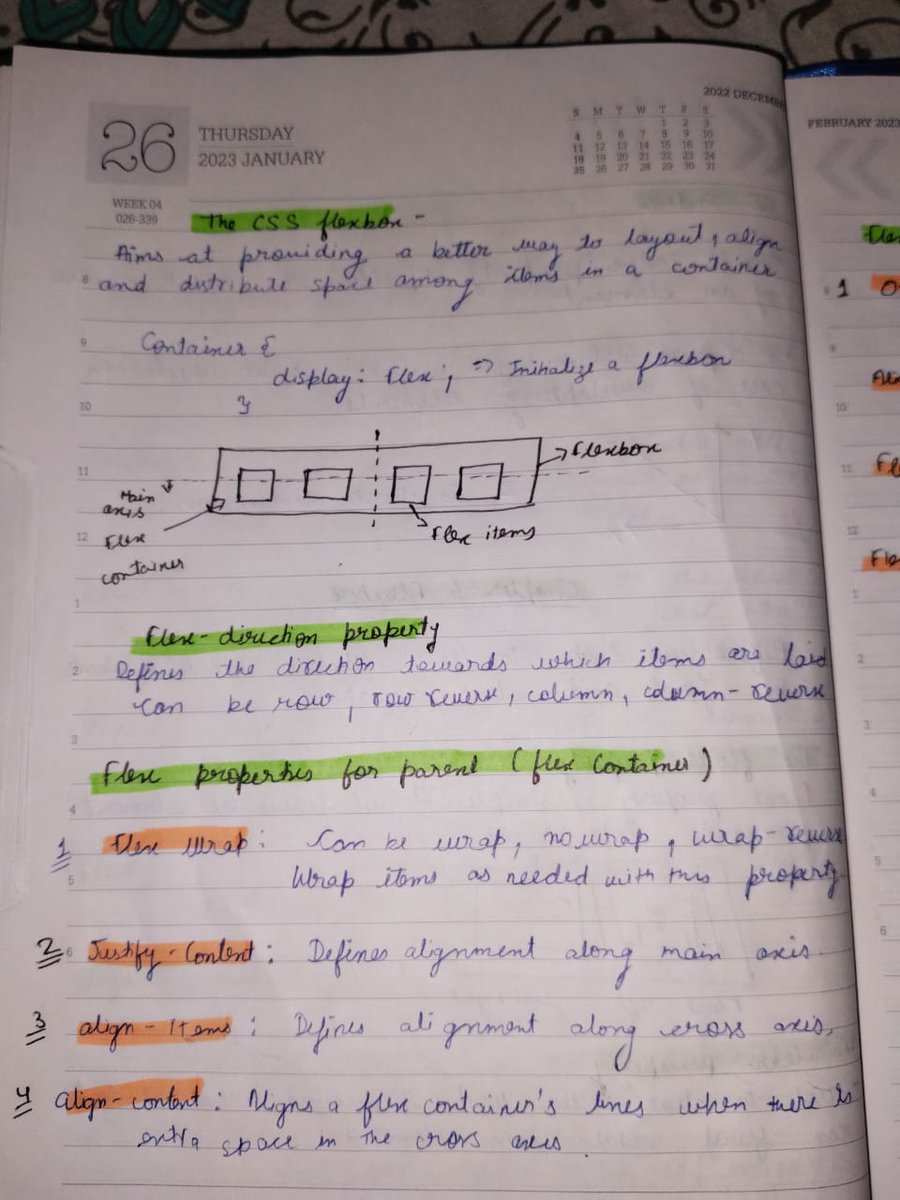 2022 DECEMBE
S M T W T F S
1 2 3
4 5 6 7 8 9 10
11 12 13 14 15 16 17
18 19 20 21 22 23 24
25 26 27 28 29 30 31
26
THURSDAY
2023 JANUARY
WEEK 04
026-339
The CSS flexbox -
Aims at providing a better way to layout, align
8 and distribute space among items in a container
9 Container {
display: flex; => Initialize a flexbox
10 }
11 Flexbox
Main
axis
12 Flex
container
Flex items
1
Flex-direction property
2 Defines the direction towards which items are laid
Can be row, row reverse, column, column-reverse
3
Flex properties for parent (flex Container)
4
1 Flex Wrap: Can be wrap, nowrap, wrap-reverse
5 Wrap items as needed with this property
2 6 Justify-Content: Defines alignment along main axis
3 align-Items: Defines alignment along cross axis.
4 align-content: Aligns a flex container's lines when there is
extra space in the cross axis
FEBRUARY 2023
Fle
8 1 O
9
Al
10
11 Fl
12
Fle
1
2
3
4
5
6